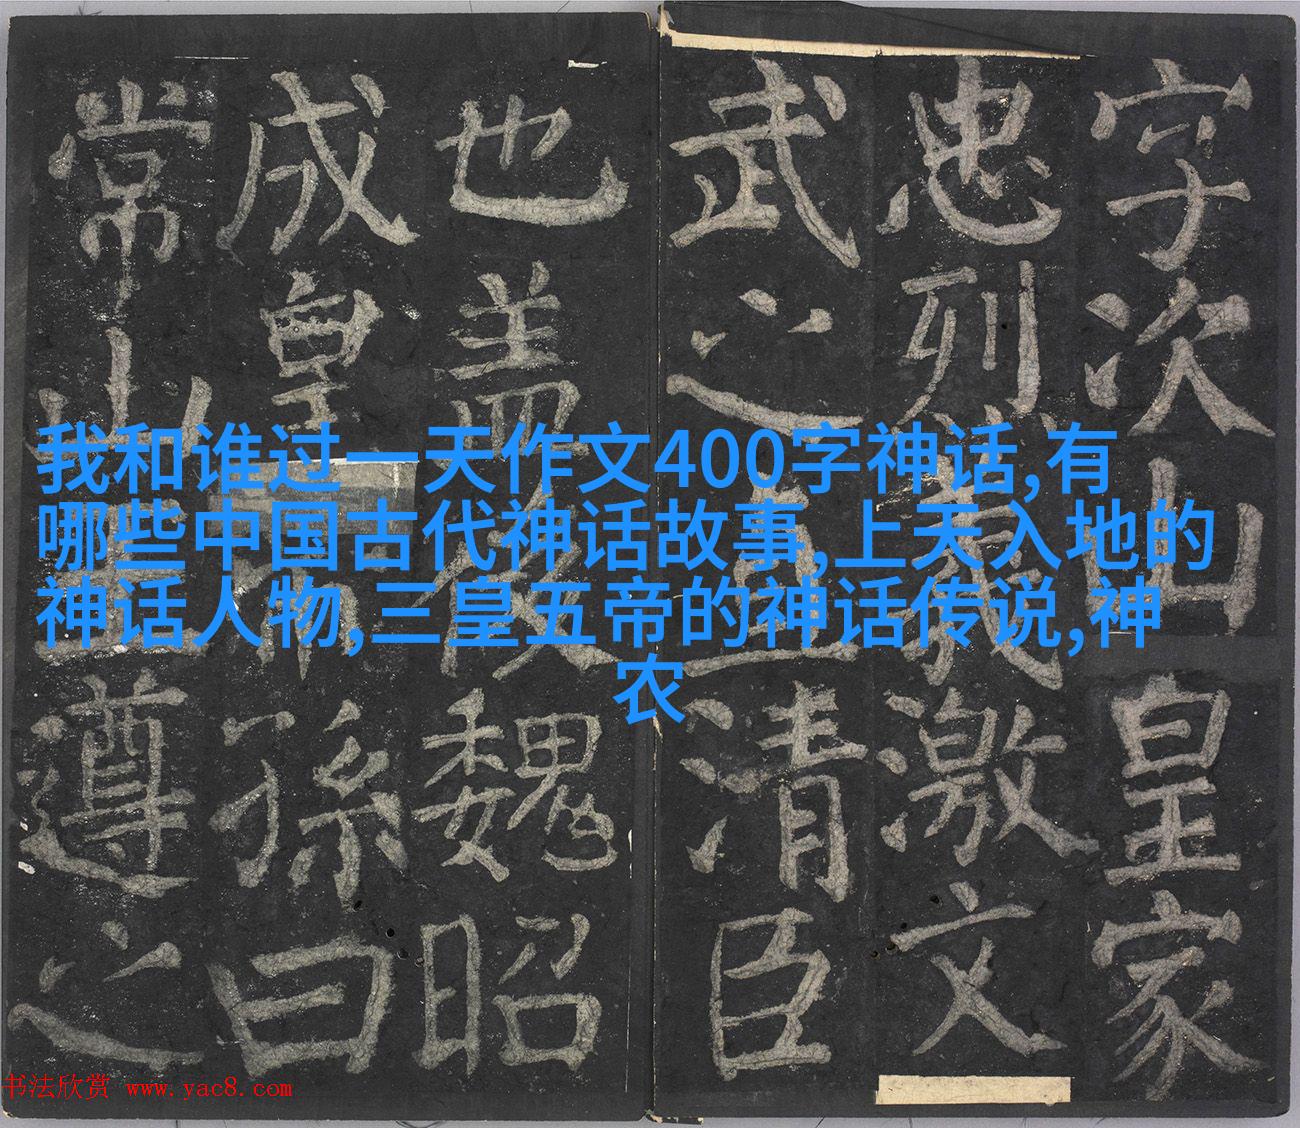 字次山皇家
忠烈義激文
武之直清臣
也盖後魏昭
成皇孫曰
常山遵之
我和谁过一天作文400字神话,有
哪些中国古代神话故事,上天入地的
神话人物,三皇五帝的神话传说,神
农
书法欣赏 www.yac8.com